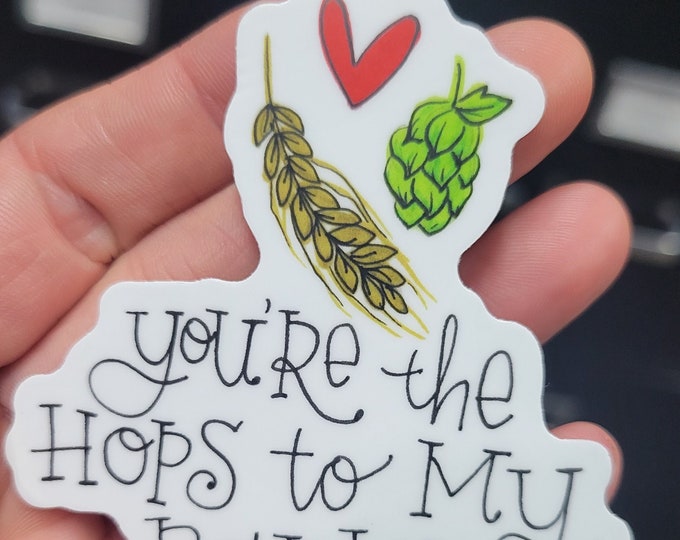 you're the
Hops to My